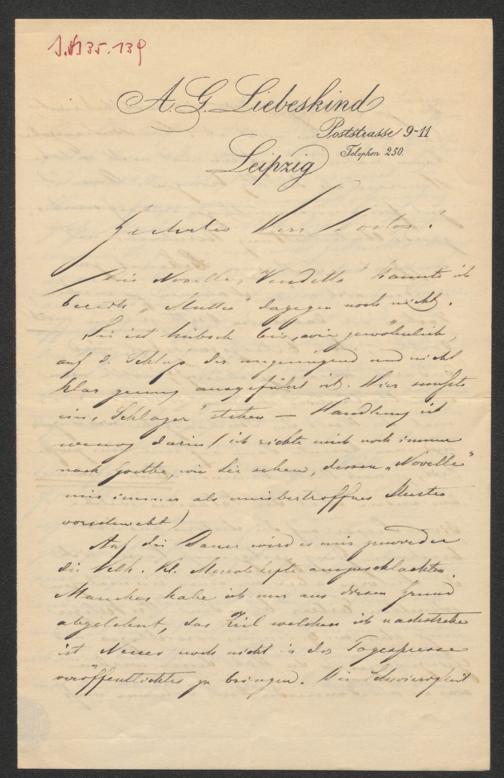 I.N. 135.139
A. G. Liebeskind
Poststrasse 9-11
Telephon 250.
Leipzig
Geehrter Herr Doctor!
Die Novelle „Vendetta" kannte ich
bereits „Mutter" dagegen noch nicht.
Sie ist hübsch bis, wie gewöhnlich,
auf d. Schluss der ungenügend und nicht
klar genug ausgeführt ist. Hier müsste
ein „Schlager" stehen — Handlung ist
wenig darin (ich richte mich noch immer
nach Goethe, wie Sie sehen, dessen „Novelle"
mir immer als unübertroffnes Muster
vorschwebt)
Auf die Dauer wird es mir
die Velh. Kl. Monatshefte auszuschlachten.
Manches habe ich nur aus diesem Grund
abgelehnt, das Ziel welchem ich nachstrebe
ist Neues noch nicht in der Tagespresse
veröffentlichtes zu bringen. Die Schwierigkeit